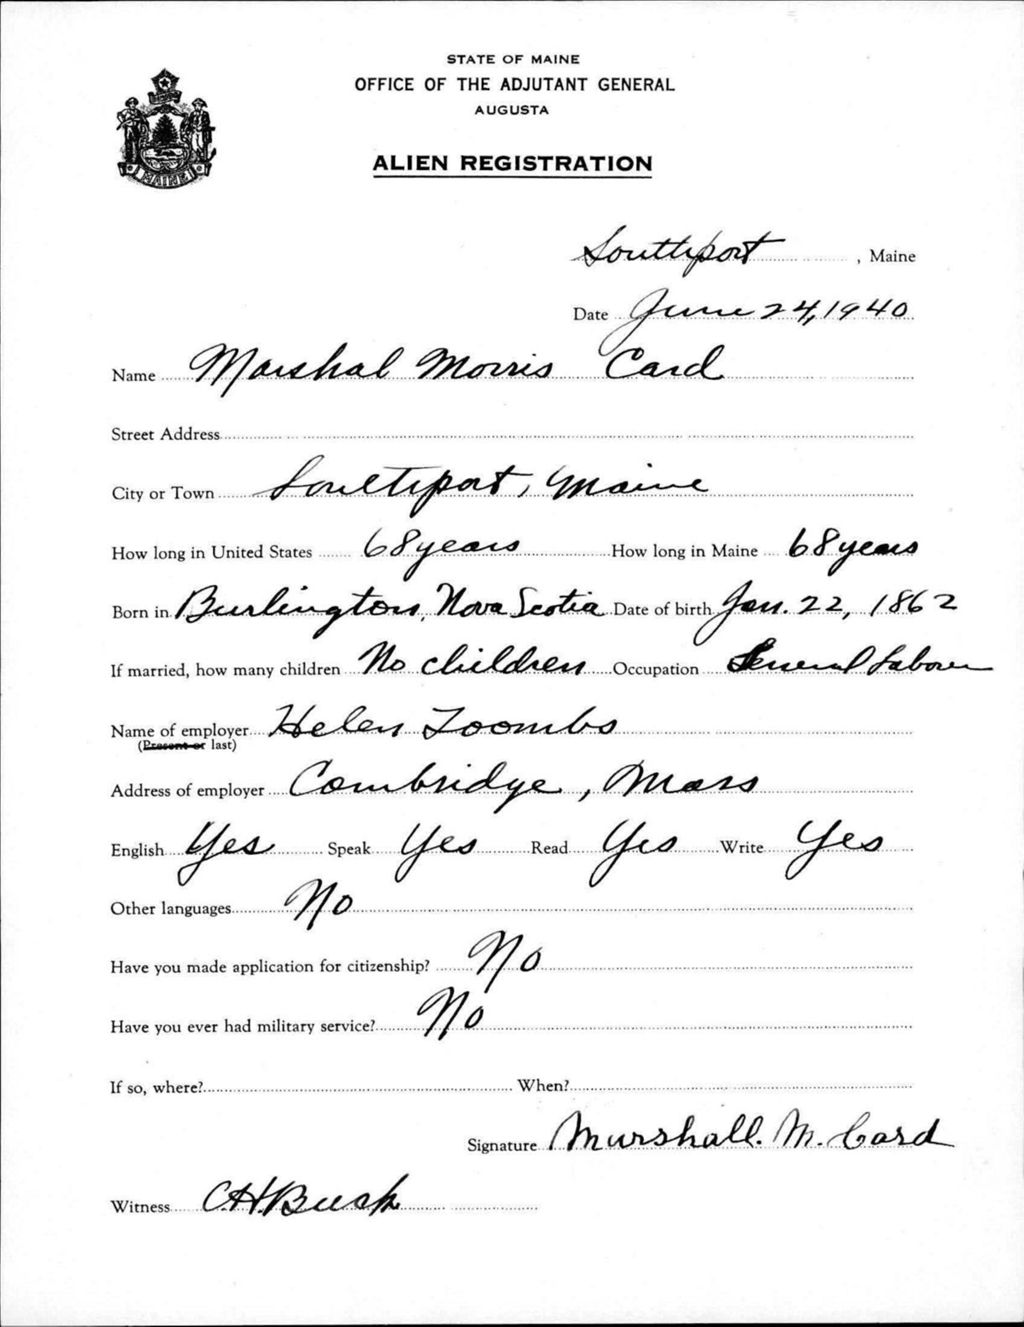 STATE OF MAINE
OFFICE OF THE ADJUTANT GENERAL
AUGUSTA
ALIEN REGISTRATION
MAINE
Southport, Maine
Date June 24, 1940
Name Marshal Morris Card
Street Address
City or Town Southport, Maine
How long in United States 68 years How long in Maine 68 years
Born in Burlington, Nova Scotia Date of birth Jan. 22, 1862
If married, how many children No children Occupation General Laborer
Name of employer Helen Toombs
(Present or last)
Address of employer Cambridge, Mass
English Yes Speak Yes Read Yes Write Yes
Other languages No
Have you made application for citizenship? No
Have you ever had military service? No
If so, where? When?
Signature Murshall. M. Card
Witness C.H. Buck